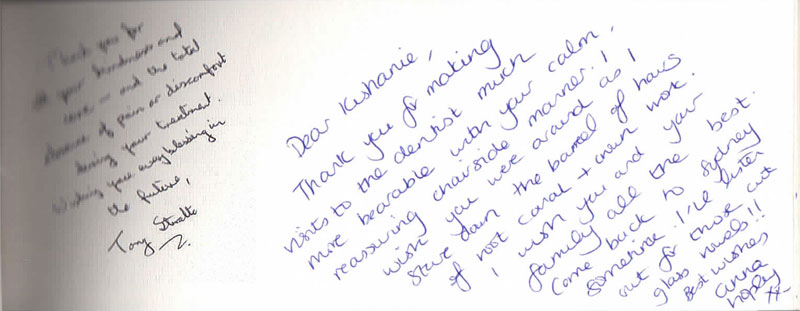 Thank you for
all your kindness and
care – and the total
absence of pain or discomfort
during your treatment.
Wishing you every blessing in
the future,
Tony
Dear Kishanie,
Thank you for making
visits to the dentist much
more bearable with your calm,
reassuring chairside manner! I
wish you were around as I
stare down the barrel of hours
of root canal + crown work.
I wish you and your
family all the best.
Come back to Sydney
sometime. I'll listen
out for those cut
glass vowels!!
Best wishes
anna
xx